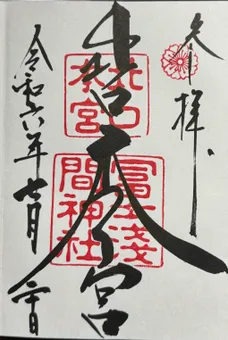 奉拝
北口本宮
北口
本宮
冨士淺
間神社
令和六年七月 日